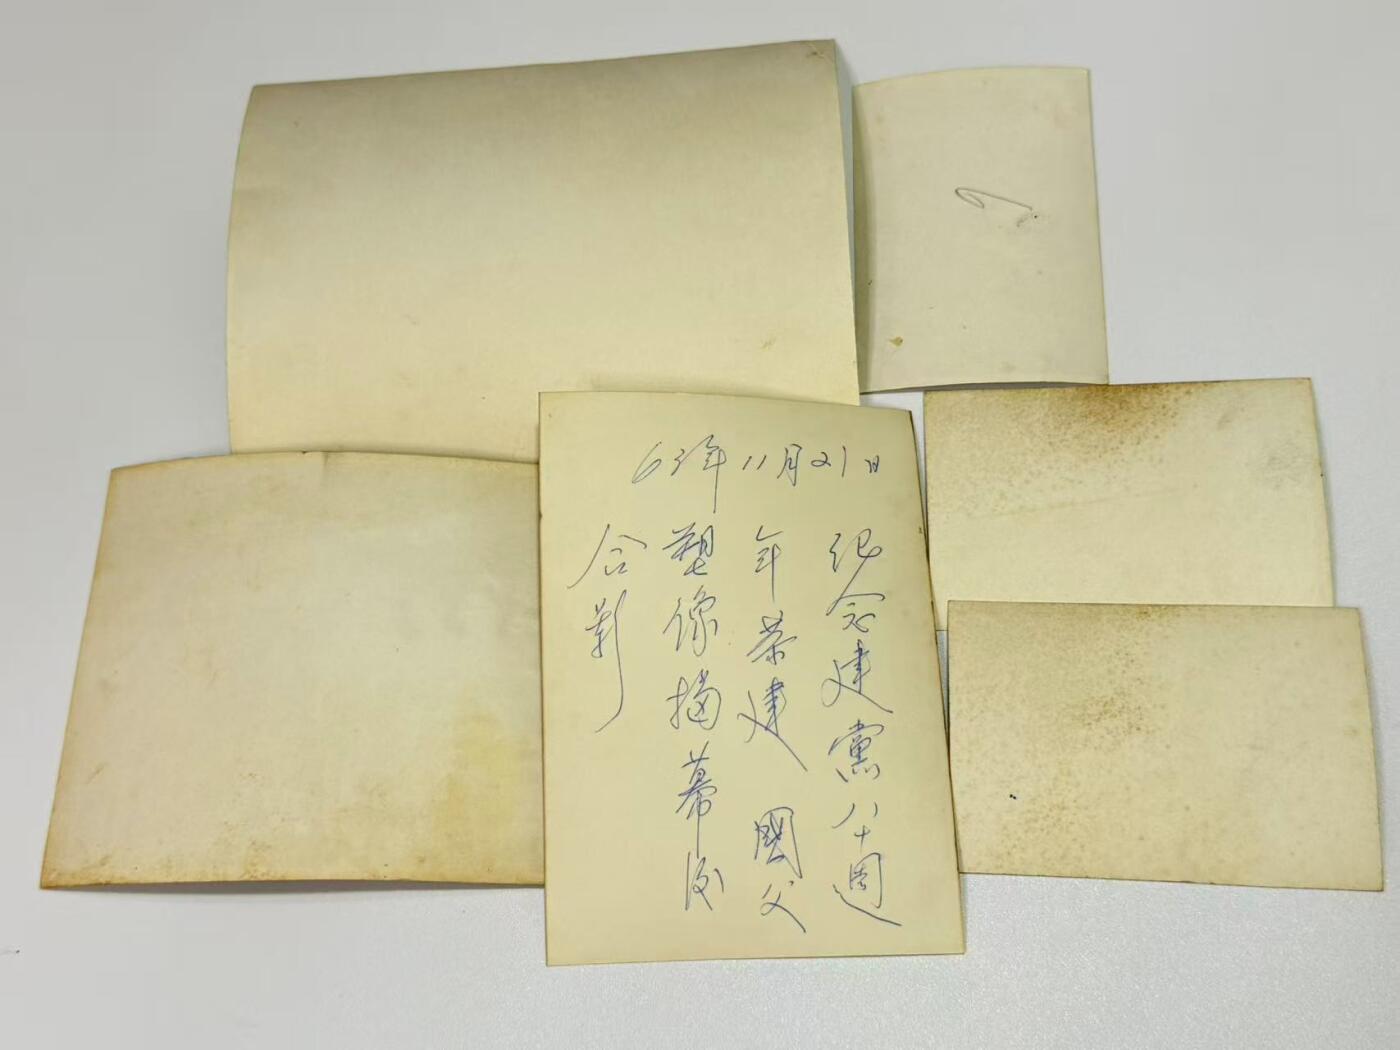 63年11月21日
紀念建黨八十週
年恭建 國父
塑像揭幕後
合影